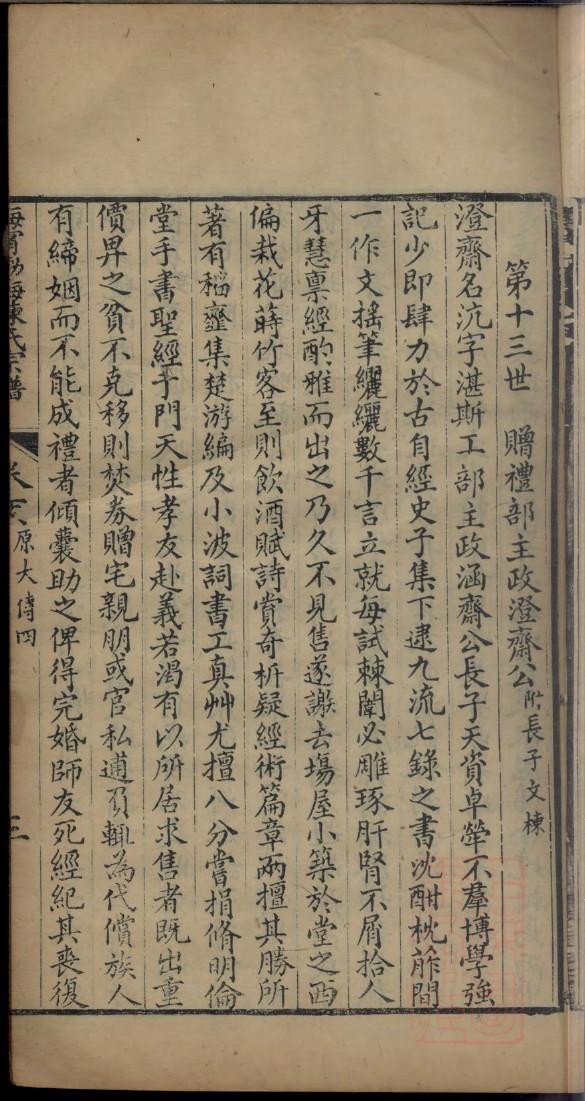 第十三世　贈禮部主政澄齋公附長子文棟
澄齋名沆字湛斯工部主政涵齋公長子天資卓犖不羣博學強
記少即肆力於古自經史子集下逮九流七錄之書沈酣枕葄間
一作文搖筆纚纚數千言立就每試棘闈必雕琢肝腎不屑拾人
牙慧稟經酌雅而出之乃久不見售遂謝去塲屋小築於堂之西
偏栽花蒔竹客至則飲酒賦詩賞奇析疑經術篇章兩擅其勝所
著有稻齋集楚游編及小波詞書工真艸尤擅八分嘗捐脩明倫
堂手書聖經于門天性孝友赴義若渴有以所居求售者既出重
價畀之貧不克移則焚券贈宅親朋或官私逋負輒為代償族人
有締姻而不能成禮者傾囊助之俾得完婚師友死經紀其喪復
海寧渤海陳氏宗譜　原大傳四　三